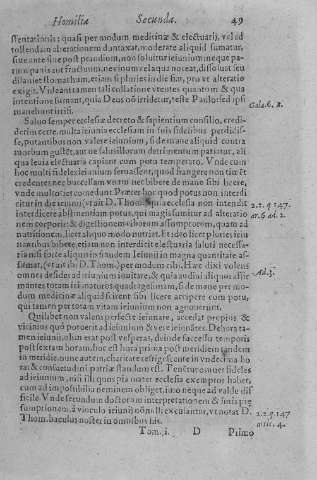 Homiliæ Secunda. 49
stentationis: quasi per modum medicinæ & electuarij, vel ad
tollendam alterationem duntaxat, moderate aliquid sumatur,
siue ante siue post prandium, non soluitur ieiunium neque pa-
rum panis aut fructuum, ne vinum vel aqua noceat, dissoluat seu
dilaniet stomachum, etiam si pluries in die fiat, pro vt alteratio
exigit. Videant tamen tali collatione vtentes quantum & qua
intentione sumant, quia Deus nō irridetur, teste Paulo: sed ipsi
manebunt irrisi.
Gala. 6. B.
Saluo semper ecclesiæ decreto & sapientium consilio, credi-
derim certe, multa ieiunia ecclesiam in suis fidelibus perdidis-
se, putantibus non valere ieiunium, si de mane aliquid contra
morbum gustēt, aut ne falsis illorum detrimentum patiatur, ali
qua leuia electuaria capiant cum potu temperato. Vnde cum
hoc multi fideles ieiunium seruassent, quod frangere non timēt
credentes nec buccellam vnam nec bibere de mane sibi licere,
vnde multoties comedunt Præter hoc quod potus non interdi
citur in die ieiunij (vt ait D. Thom. quia ecclesia non intendit
interdicere abstinentiam potus, qui magis sumitur ad alteratio
nem corporis & digestionem ciborum assumptorum, quam ad
nutritionem, licet aliquo modo nutriat. Et ideo licet pluries ieiu
nantibus bibere, etiam non interdicit electuaria saluti necessa-
ria nisi forte aliquis in fraudem Ieiunij in magna quantitate as-
sumat, (vt ait ibi D. Tho.) per modum cibi.
2. 2. q. 147.
ar. 6. ad. 2.
Ad. 3.
Hæc dixi volens
omnes desides ad ieiunium inuitare, & quia audiui aliquos affir-
mantes totam ieiunatores quadragesimam, si de mane per mo-
dum medicinæ aliquid scirent sibi licere accipere cum potu,
qui tamen per totam vitam ieiunium non agnouerunt.
Quilibet non valens perfecte ieiunare, accedat propius &
vicinius quò potuerit ad ieiunium & vere ieiunātes. De hora ta-
men ieiunij, olim erat post vesperas, deinde successu temporis
post sextam horam, hoc est hora prima post meridiem tandem
in meridie, nunc autem, charitate refrigescente in vndecima ho-
ra: & consuetudini patriæ standum est. Tenētur omnes fideles
ad ieiunium, nisi illi quos pia mater ecclesia exemptos habet,
cum ad impossibilia neminem obliget, imo neque ad valde dif
ficile. Vnde secundum doctorum interpretationem & suis præ
sumptionem, à vinculo ieiunij nōnulli excusantur, vt notat D.
Thom. baculus noster in omnibus his.
2. 2. q. 147
artic. 4.
Tom. j. D Primo